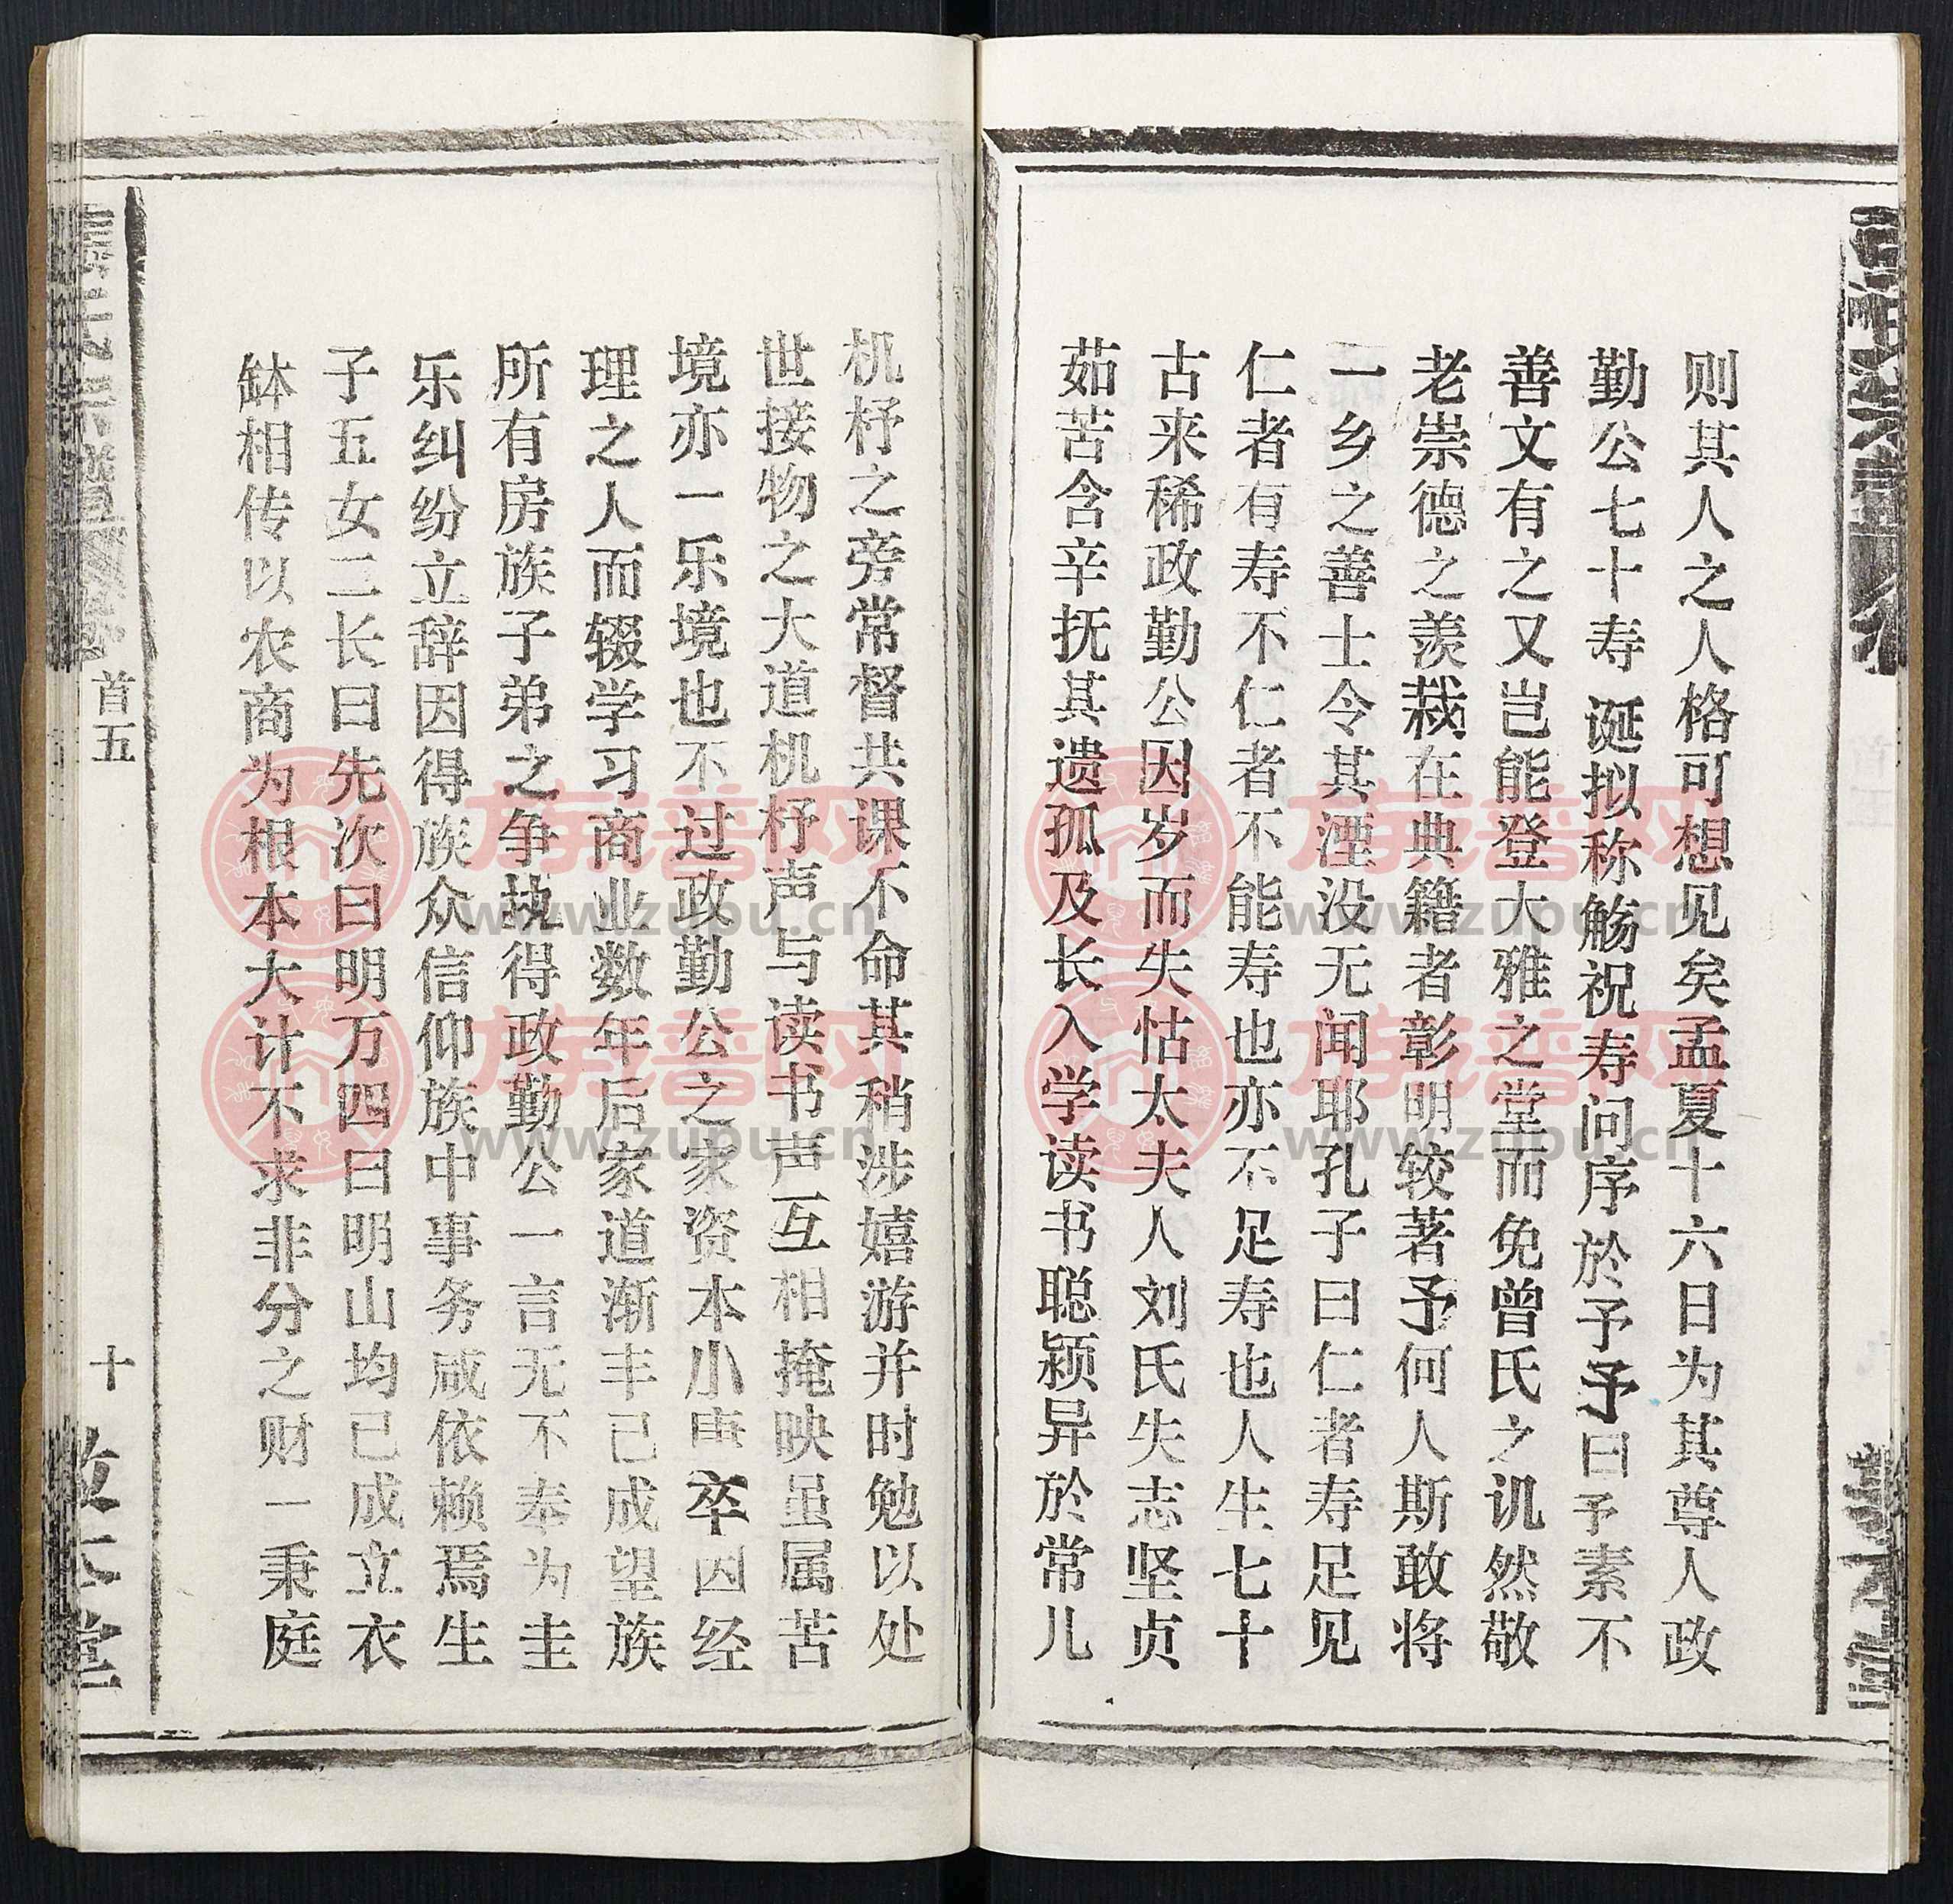 则其人之人格可想见矣孟夏十六日为其尊人政
勤公七十寿诞拟称觞祝寿问序於予予曰予素不
善文有之又岂能登大雅之堂而免曾氏之讥然敬
老崇德之羡栽在典籍者彰明较著予何人斯敢将
一乡之善士令其湮没无闻耶孔子曰仁者寿足见
仁者有寿不仁者不能寿也亦不足寿也人生七十
古来稀政勤公因岁而失怙太夫人刘氏失志坚贞
茹苦含辛抚其遗孤及长入学读书聪颖异於常儿
机杼之旁常督共课不命其稍涉嬉游并时勉以处
世接物之大道机杼声与读书声互相掩映虽属苦
境亦一乐境也不过政勤公之家资本小康卒因经
理之人而辍学习商业数年后家道渐丰己成望族
所有房族子弟之争执得政勤公一言无不奉为圭
乐纠纷立辞因得族众信仰族中事务咸依赖焉生
子五女二长曰先次曰明万四曰明山均已成立衣
钵相传以农商为根本大计不求非分之财一秉庭
首五
十
族谱网
www.zupu.cn
族谱网
www.zupu.cn
族谱网
www.zupu.cn
族谱网
www.zupu.cn